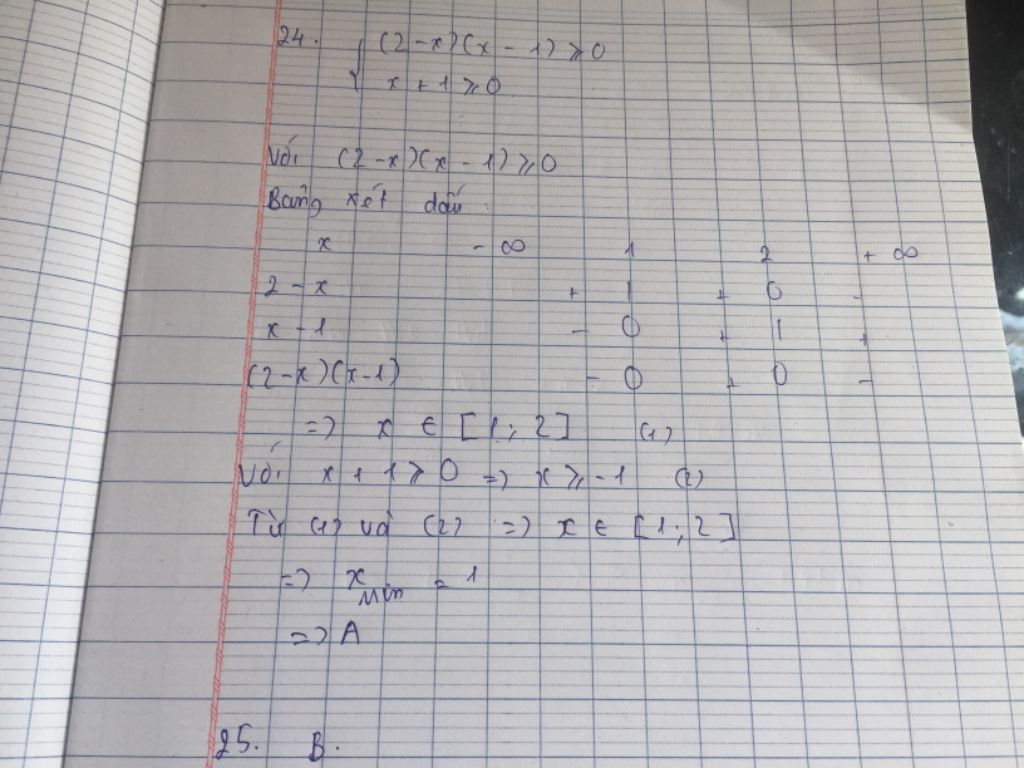 24. { (2-x)(x-1) ⩾ 0
x+1 ⩾ 0
Với (2-x)(x-1) ⩾ 0
Bảng xét dấu
x -∞ 1 2 +∞
2-x + | + 0 -
x-1 - 0 + | +
(2-x)(x-1) - 0 + 0 -
=> x ∈ [1; 2] (1)
Với x+1 ⩾ 0 => x ⩾ -1 (2)
Từ (1) và (2) => x ∈ [1; 2]
=> x min = 1
=> A
25. B.